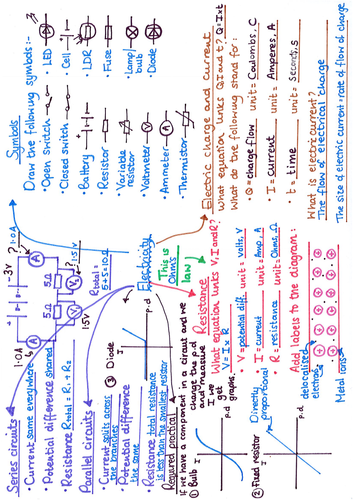 Symbols
Draw the following symbols:-
• Open switch
• Closed switch
• Battery
• Resistor
• Variable
resistor
• Voltmeter
• Ammeter
• Thermistor
• LED
• Cell
• LDR
• Fuse
• Lamp/
bulb
• Diode
V
A
Electric charge and current
What equation links Q, I and t? Q=Ixt
What do the following stand for:
• Q= charge flow unit= Coulombs, C
• I= current unit= Amperes, A
• t= time unit= Seconds, S
What is electric current?
The flow of electrical charge
The size of electric current=rate of flow of charge
Electricity
Series circuits
• Current same everywhere
• Potential difference shared
• Resistance Rtotal = R1 + R2
3V
1.0A
1.0A
A
A
5Ω
5Ω
V
V
1.5V
1.5V
Rtotal =
5+5=10Ω
Parallel circuits
• Current splits across
the branches
• Potential difference
the same
• Resistance total resistance
is less than the smallest resistor
This is
Ohm's
law
Resistance
What equation links V, I and R?
V=IxR
• V= potential diff. unit= volts, V
• I= current unit= Amp, A
• R= resistance unit= Ohms, Ω
Add labels to the diagram:
delocalised
electrons
Metal ions
Required practical
If we have a component in a circuit and we
change the p.d
and measure
I we
get
graphs.
① Bulb
I
p.d
② Fixed resistor
Directly
proportional
I
p.d
③ Diode
I
p.d